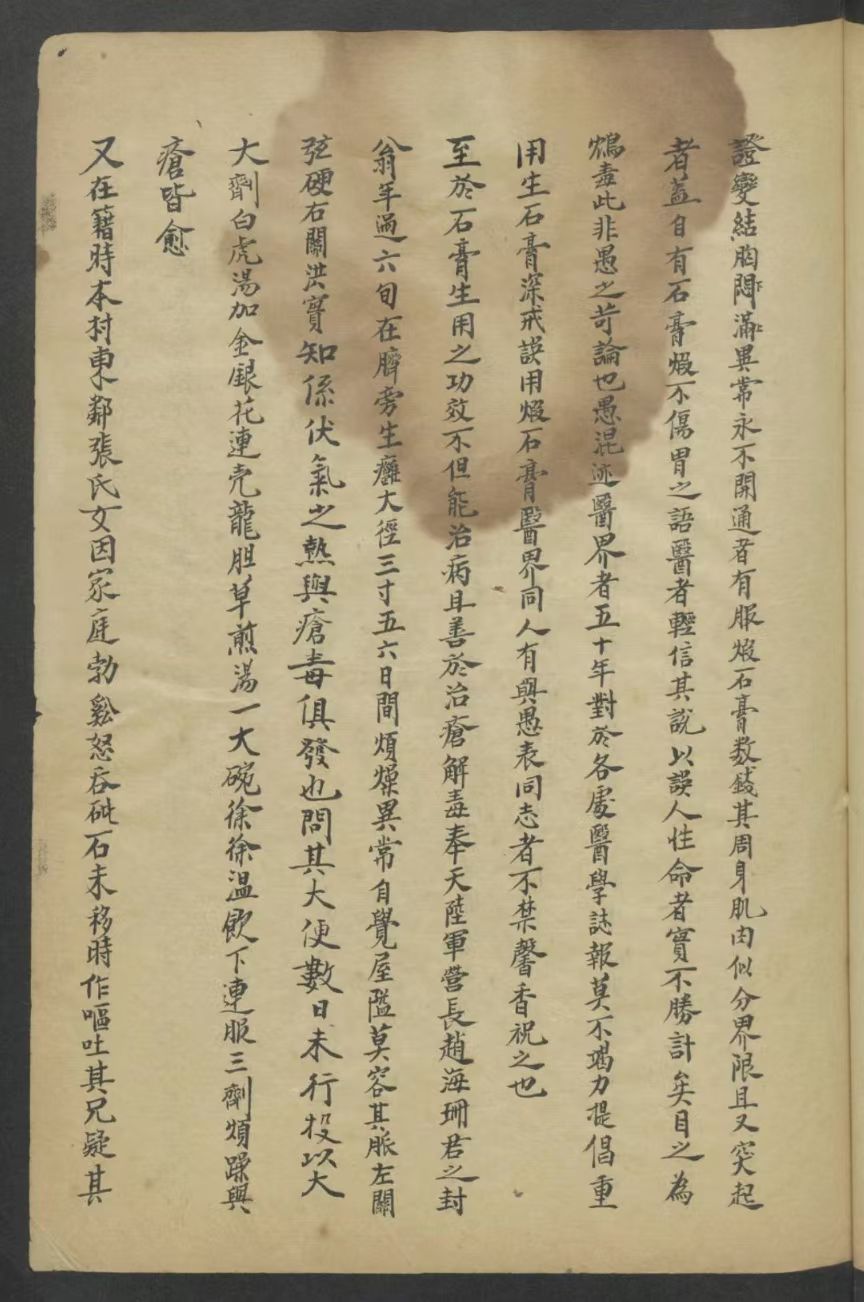 證變結胸悶滿異常永不開通者有服煅石膏数錢其周身肌肉似分界限且又突起
者蓋自有石膏煅不傷胃之語醫者輕信其說以誤人性命者實不勝計矣目之為
鴆毒此非愚之苛論也愚混迹醫界者五十年對於各處醫學誌報莫不竭力提倡重
用生石膏深戒誤用煅石膏醫界同人有與愚表同志者不禁馨香祝之也
至於石膏生用之功效不但能治病且善於治瘡解毒奉天陸軍營長趙海珊君之封
翁年過六旬在臍旁生癰大徑三寸五六日間煩燥異常自覺屋隘莫容其脈左關
弦硬右關洪實知係伏氣之熱與瘡毒俱發也問其大便數日未行投以大
大劑白虎湯加金銀花連壳龍胆草煎湯一大碗徐徐温飲下連服三劑煩躁與
瘡皆愈
又在籍時本村東鄰張氏女因家庭勃谿怒吞砒石未移時作嘔吐其兄疑其